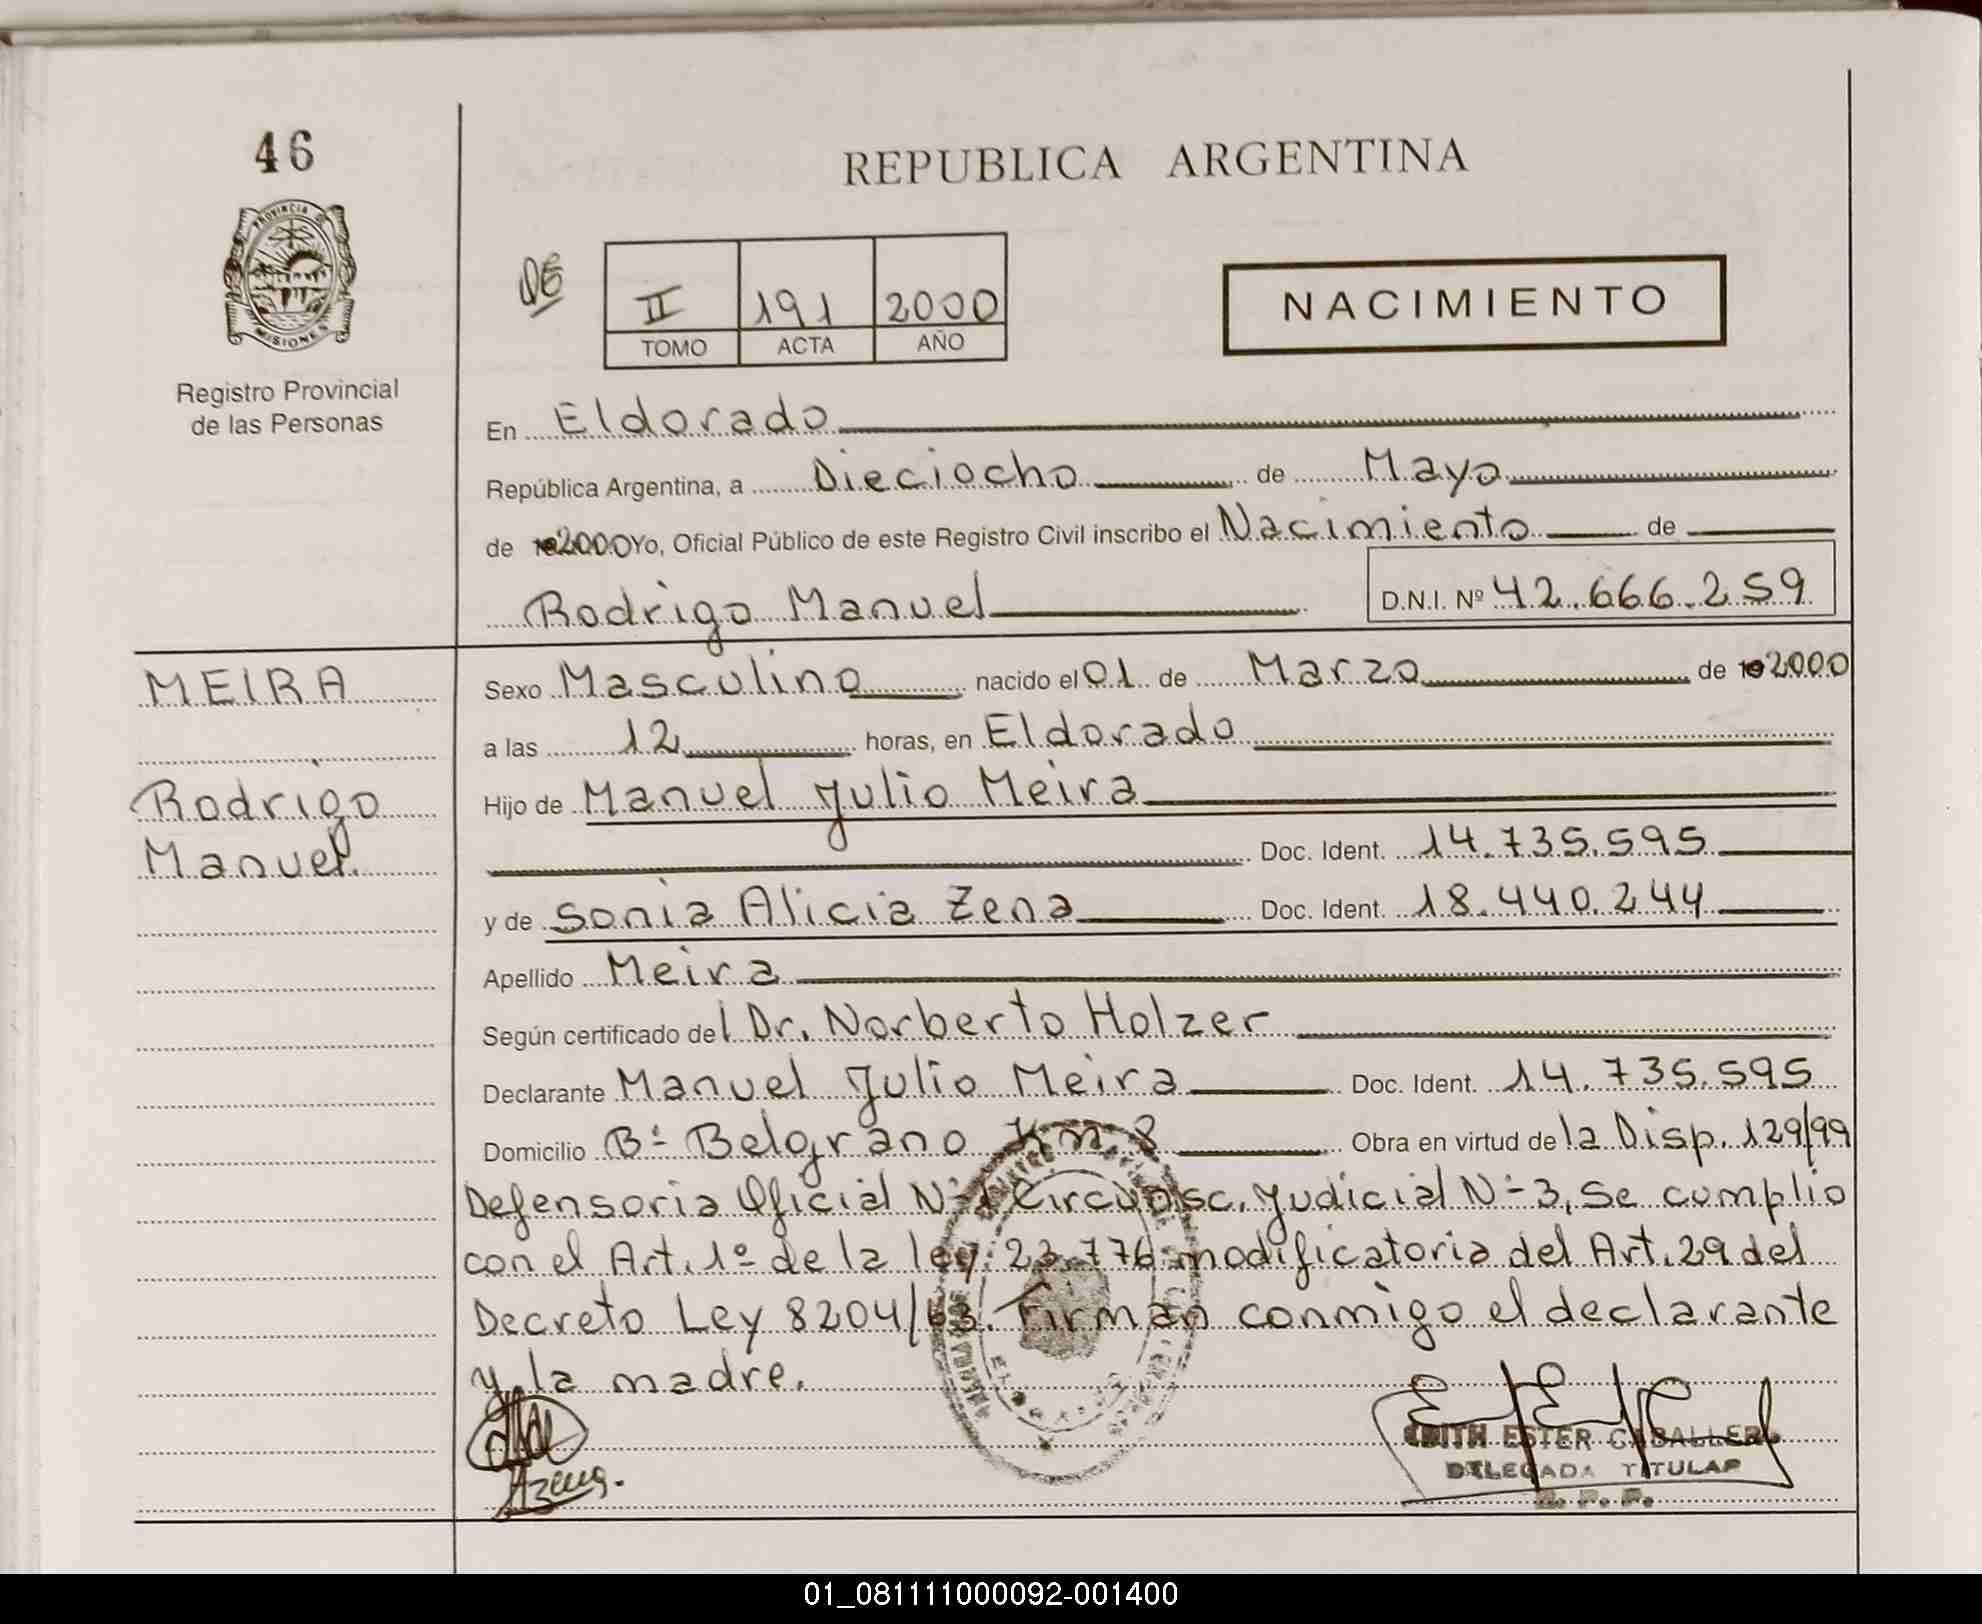 46
REPUBLICA ARGENTINA
PROVINCIA D
MISIONES
Registro Provincial
de las Personas
II 191 2000
TOMO ACTA AÑO
NACIMIENTO
En Eldorado
República Argentina, a Dieciocho de Mayo
de 2000 Yo, Oficial Público de este Registro Civil inscribo el Nacimiento de
Rodrigo Manuel D.N.I. Nº 42.666.259
MEIRA
Rodrigo
Manuel
Sexo Masculino nacido el 01 de Marzo de 2000
a las 12 horas, en Eldorado
Hijo de Manuel Julio Meira
Doc. Ident. 14.735.595
y de Sonia Alicia Zena Doc. Ident. 18.440.244
Apellido Meira
Según certificado del Dr. Norberto Holzer
Declarante Manuel Julio Meira Doc. Ident. 14.735.595
Domicilio Bº Belgrano Km. 8 Obra en virtud de la Disp. 129/99
Defensoria Oficial Nº 1 Circunsc. Judicial Nº 3, Se cumplio
con el Art. 1º de la ley: 23.776 modificatoria del Art. 29 del
Decreto Ley 8204/63. Firman conmigo el declarante
y la madre.
EDITH ESTER CABALLERO
DELEGADA TITULAR
R. P. P.
01_081111000092-001400